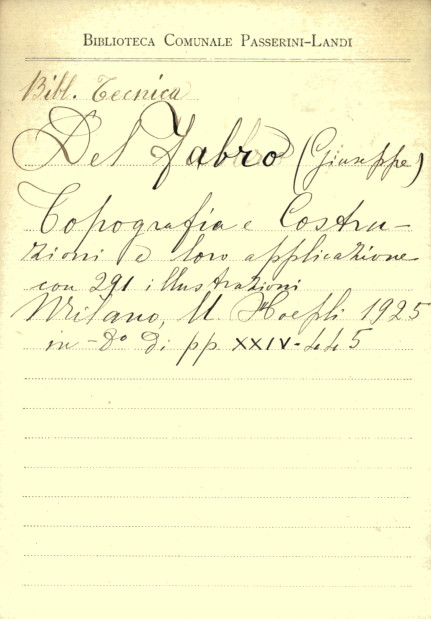 BIBLIOTECA COMUNALE PASSERINI-LANDI
Bibl. Tecnica
Del Fabro (Giuseppe)
Topografia e Costru-
zioni e loro applicazione
con 291 illustrazioni
Milano, U. Hoepli 1925
in-8° di pp XXIV-445